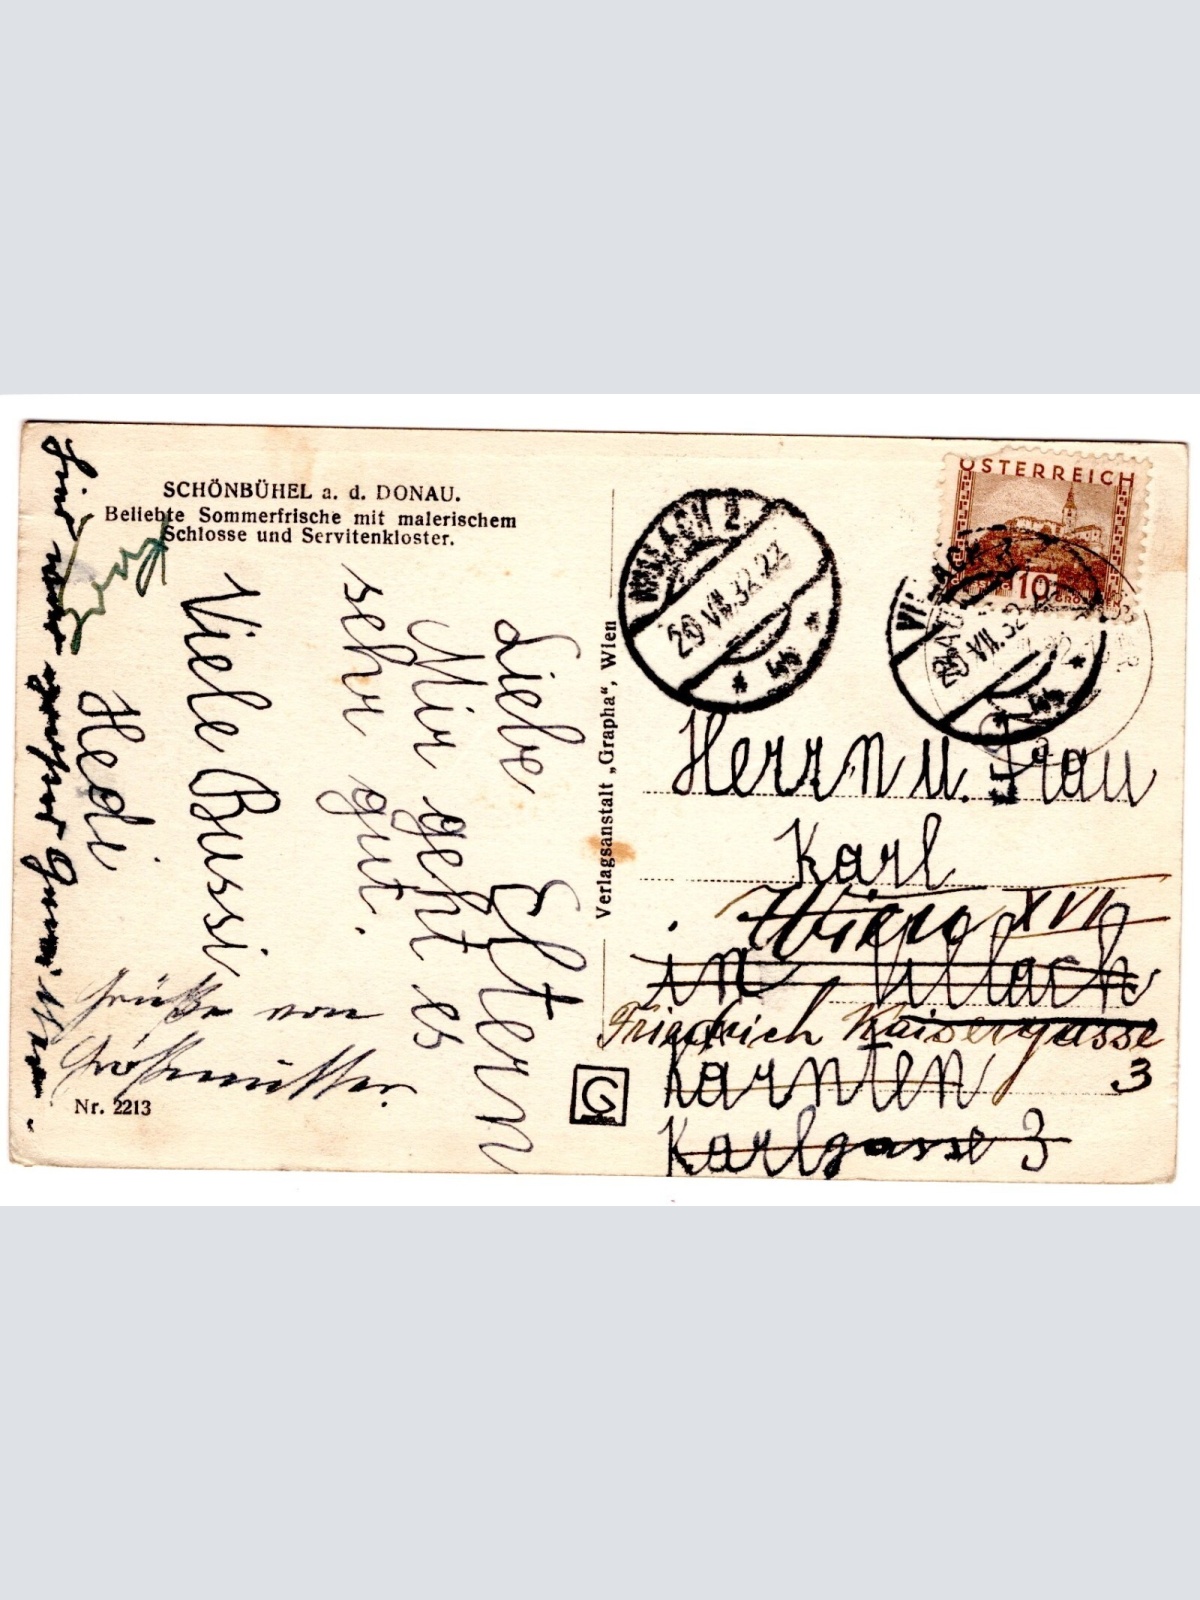 SCHÖNBÜHEL a. d. DONAU.
Beliebte Sommerfrische mit malerischem
Schlosse und Servitenkloster.
Liebe Eltern
Mir geht es
sehr gut.
Viele Bussi
Hedi
Grüße von
Großmutter.
Nr. 2213
Verlagsanstalt „Grapha“, Wien
G
VILLACH 2
20.VII.32.22
* 4b *
ÖSTERREICH
10
VILLACH 2
20.VII.32
* 4b *
Herrn u. Frau
Karl
Wien XVII
in Villach
Friedrich Kaisergasse
3
Kärnten
Karlgasse 3